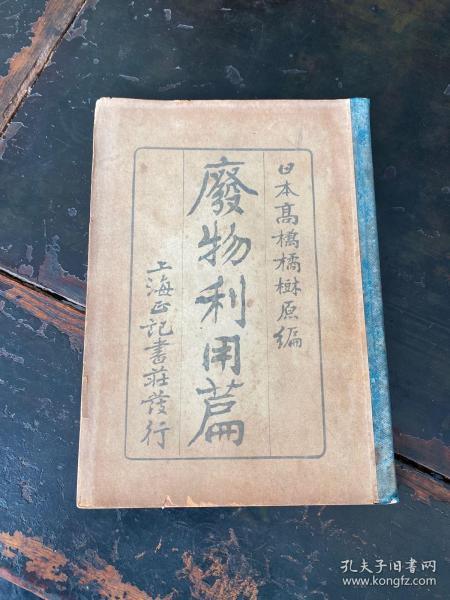 日本高橋橘樹原編
廢物利用篇
上海正記書莊發行
孔夫子旧书网
www.kongfz.com